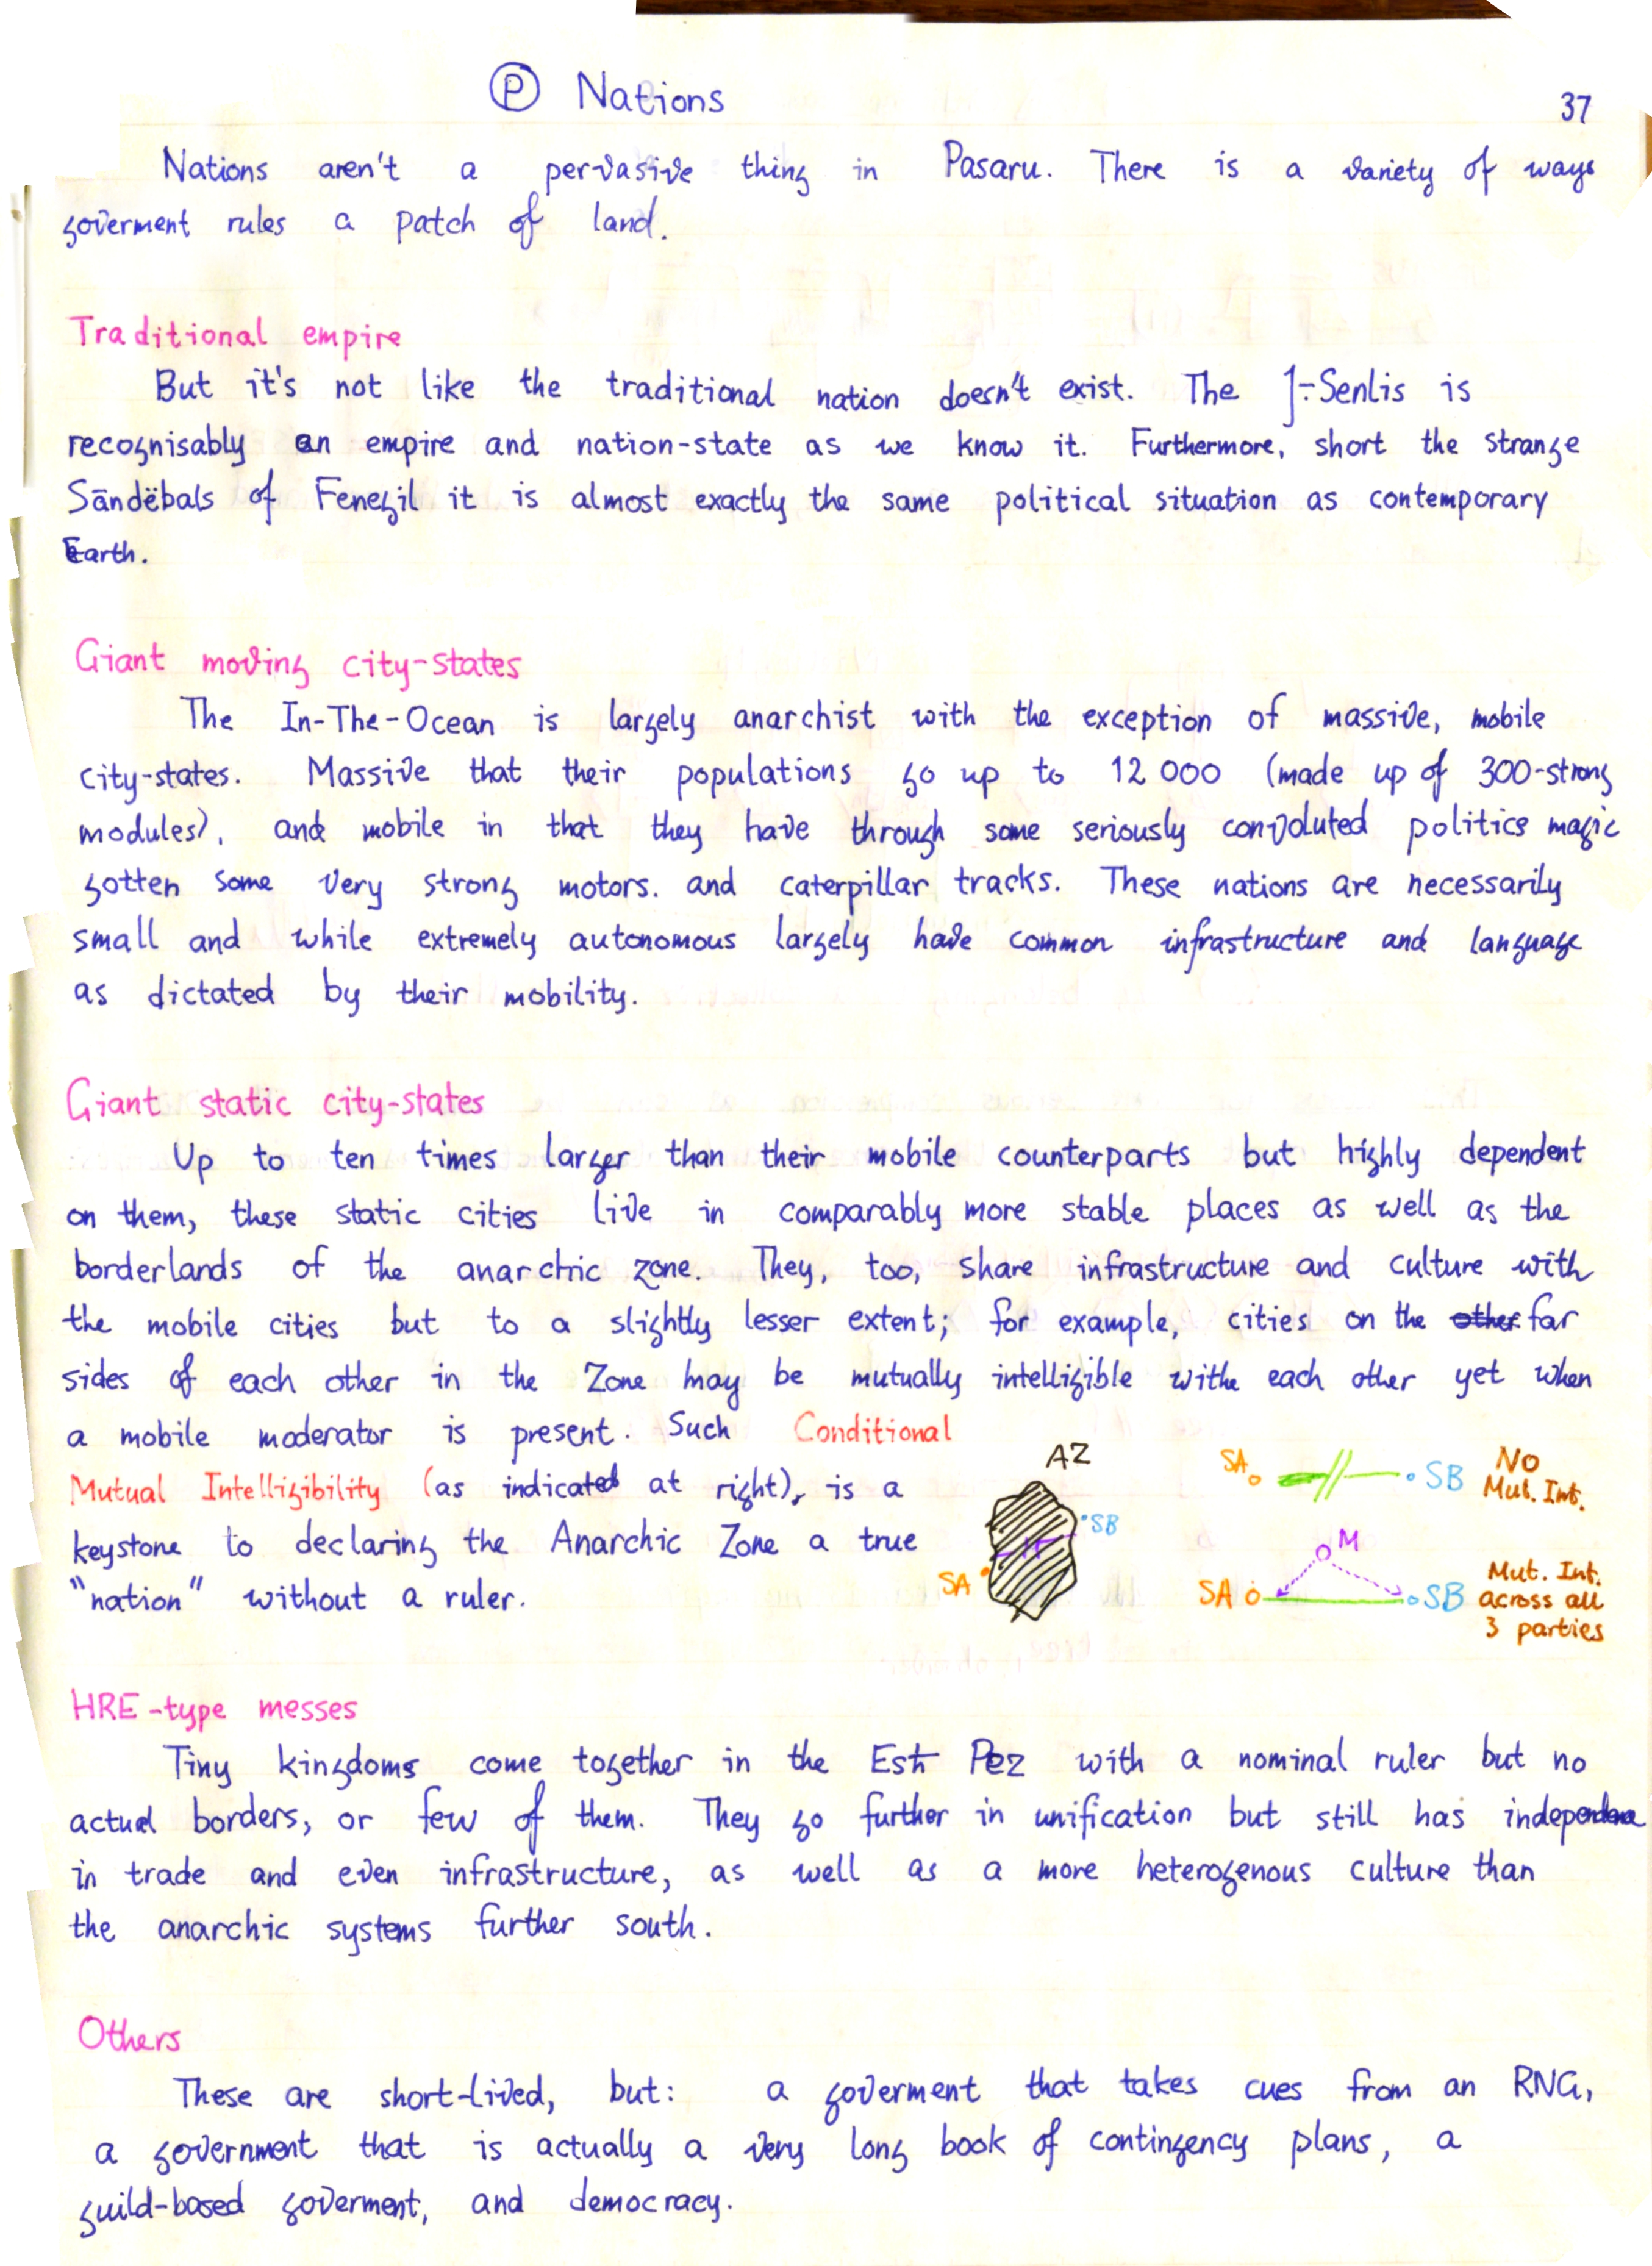 Ⓟ Nations
37
Nations aren't a pervasive thing in Pasaru. There is a variety of ways
goverment rules a patch of land.
Traditional empire
But it's not like the traditional nation doesn't exist. The Senlis is
recognisably an empire and nation-state as we know it. Furthermore, short the strange
Sāndëbals of Fenegil it is almost exactly the same political situation as contemporary
Earth.
Giant moving city-states
The In-The-Ocean is largely anarchist with the exception of massive, mobile
city-states. Massive that their populations go up to 12 000 (made up of 300-strong
modules), and mobile in that they have through some seriously convoluted politics magic
gotten some very strong motors. and caterpillar tracks. These nations are necessarily
small and while extremely autonomous largely have common infrastructure and language
as dictated by their mobility.
Giant static city-states
Up to ten times larger than their mobile counterparts but highly dependent
on them, these static cities live in comparably more stable places as well as the
borderlands of the anarchic zone. They, too, share infrastructure and culture with
the mobile cities but to a slightly lesser extent; for example, cities on the other far
sides of each other in the Zone may be mutually intelligible withe each other yet when
a mobile moderator is present. Such Conditional
Mutual Intelligibility (as indicated at right), is a
keystone to declaring the Anarchic Zone a true
"nation" without a ruler.
AZ
SB
SA
SA
SB
No
Mut. Int.
M
SA
SB
Mut. Int.
across all
3 parties
HRE-type messes
Tiny kingdoms come together in the Est Pez with a nominal ruler but no
actual borders, or few of them. They go further in unification but still has independence
in trade and even infrastructure, as well as a more heterogenous culture than
the anarchic systems further south.
Others
These are short-lived, but: a goverment that takes cues from an RNG,
a government that is actually a very long book of contingency plans, a
guild-based goverment, and democracy.